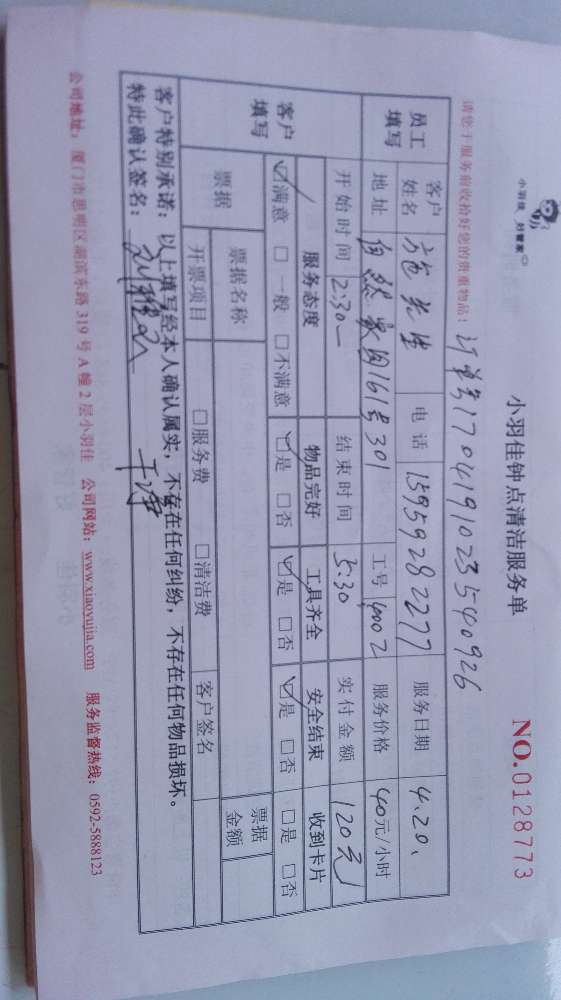 小羽佳 好管家
小羽佳钟点清洁服务单
NO.0128773
请您于服务前收拾好您的贵重物品！
订单号170419102354 0926
员工填写 客户姓名 施先生 电话 15959282277 服务日期 4.20.
地址 自然家园161号301 工号 4002 服务价格 40元/小时
开始时间 2:30 结束时间 5:30 实付金额 120元
客户填写 服务态度 物品完好 工具齐全 安全结束 收到卡片
☑满意 □一般 □不满意 ☑是 □否 ☑是 □否 ☑是 □否 □是 □否
票据 票据名称 票据金额
开票项目 □服务费 □清洁费 客户签名
客户特别承诺：以上填写经本人确认属实，不存在任何纠纷，不存在任何物品损坏。
特此确认签名： 干净
公司地址：厦门市思明区湖滨东路319号A幢2层小羽佳 公司网站：www.xiaoyujia.com 服务监督热线：0592-5888123